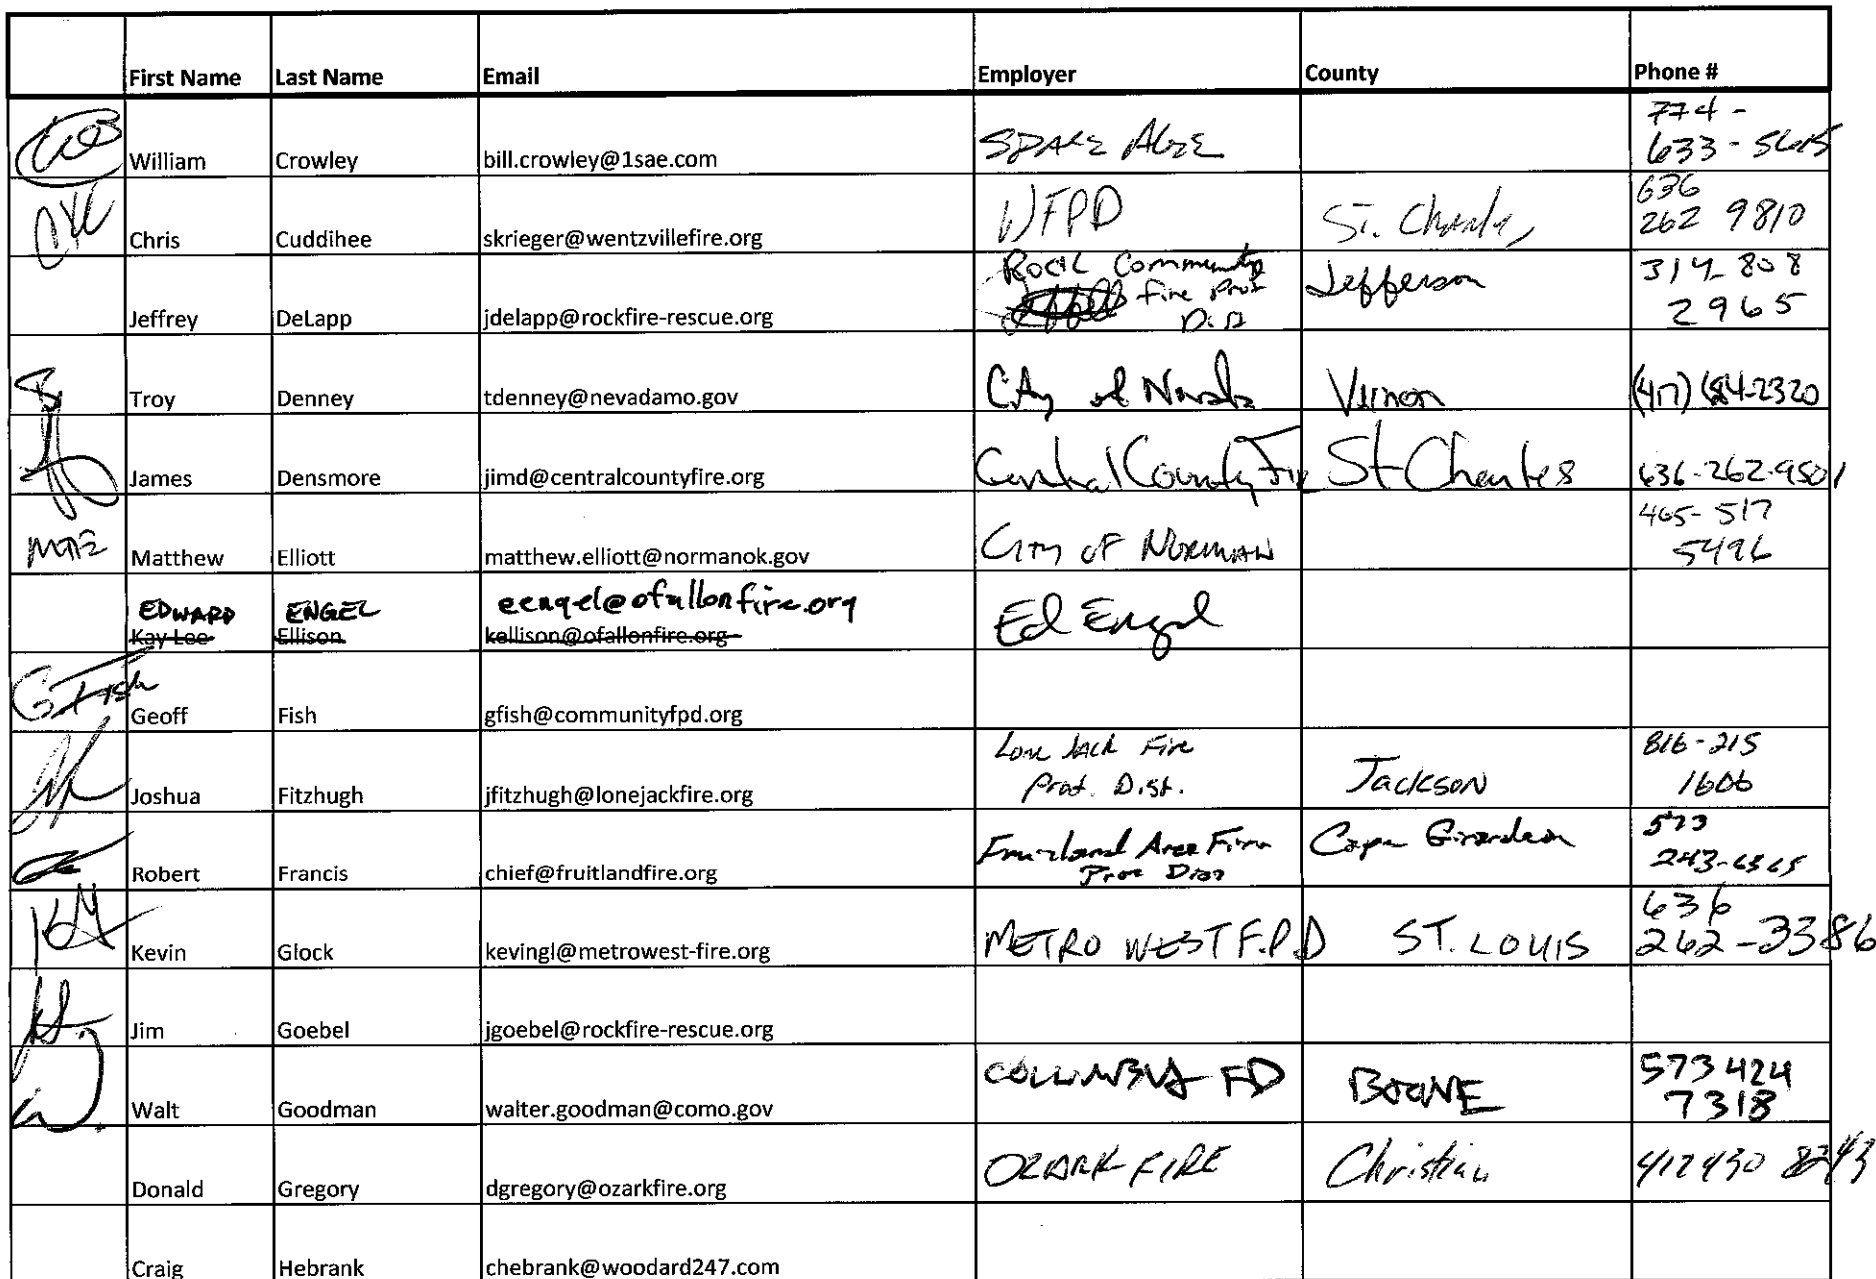 First Name Last Name Email Employer County Phone #
William Crowley bill.crowley@1sae.com SPACE AGE 774-
633-5615
Chris Cuddihee skrieger@wentzvillefire.org WFPD St. Charles 636
262 9810
Jeffrey DeLapp jdelapp@rockfire-rescue.org Rock Community Jefferson 314-808
Fire Prot 2965
Dist
Troy Denney tdenney@nevadamo.gov City of Nevada Vernon (417) 684-2320
James Densmore jimd@centralcountyfire.org Central County Fire St Charles 636-262-9501
Matthew Elliott matthew.elliott@normanok.gov CITY OF NORMAN 405-517
5496
EDWARD ENGEL eengel@ofallonfire.org Ed Engel
Kay Lee Ellison kellison@ofallonfire.org
G Fish
Geoff Fish gfish@communityfpd.org
Joshua Fitzhugh jfitzhugh@lonejackfire.org Lone Jack Fire Jackson 816-215
Prot. Dist. 1606
Robert Francis chief@fruitlandfire.org Fruitland Area Fire Cape Girardeau 573
Prot Dist 243-6365
Kevin Glock kevingl@metrowest-fire.org METRO WEST F.P.D ST. LOUIS 636
262-3386
Jim Goebel jgoebel@rockfire-rescue.org
Walt Goodman walter.goodman@como.gov COLUMBIA FD BOONE 573 424
7318
Donald Gregory dgregory@ozarkfire.org OZARK FIRE Christian
Craig Hebrank chebrank@woodard247.com